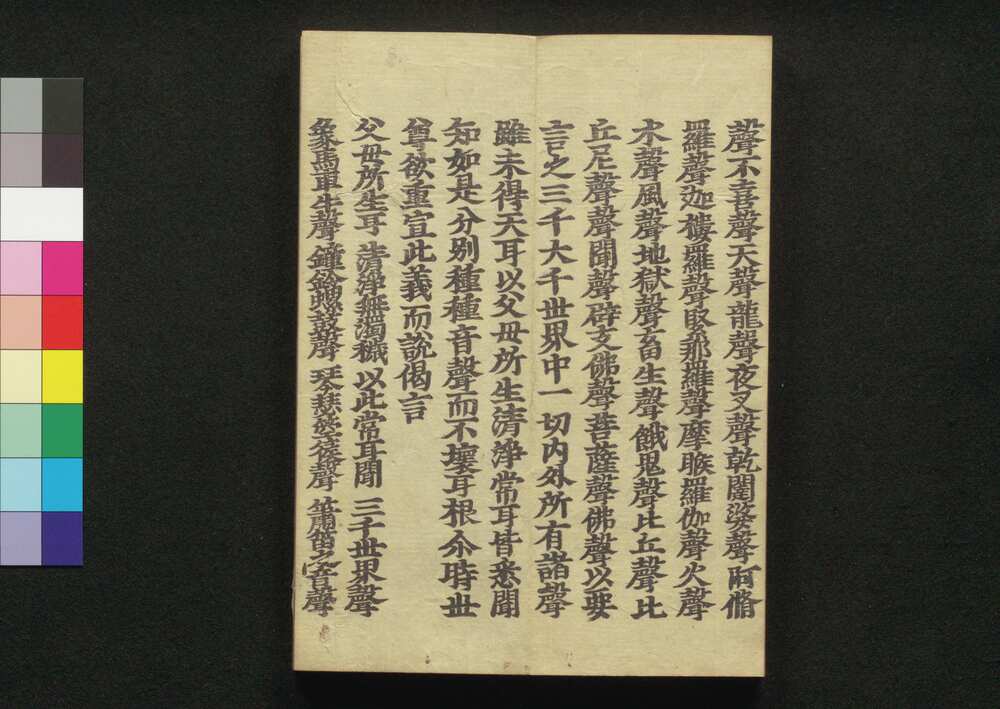 聲不喜聲天聲龍聲夜叉聲乾闥婆聲阿脩
羅聲迦樓羅聲緊那羅聲摩睺羅伽聲火聲
水聲風聲地獄聲畜生聲餓鬼聲比丘聲比
丘尼聲聲聞聲辟支佛聲菩薩聲佛聲以要
言之三千大千世界中一切内外所有諸聲
雖未得天耳以父母所生清淨常耳皆悉聞
知如是分別種種音聲而不壞耳根尒時世
尊欲重宣此義而說偈言
父母所生耳 清淨無濁穢 以此常耳聞 三千世界聲
象馬車牛聲 鍾鈴螺鼓聲 琴瑟箜篌聲 簫笛之音聲